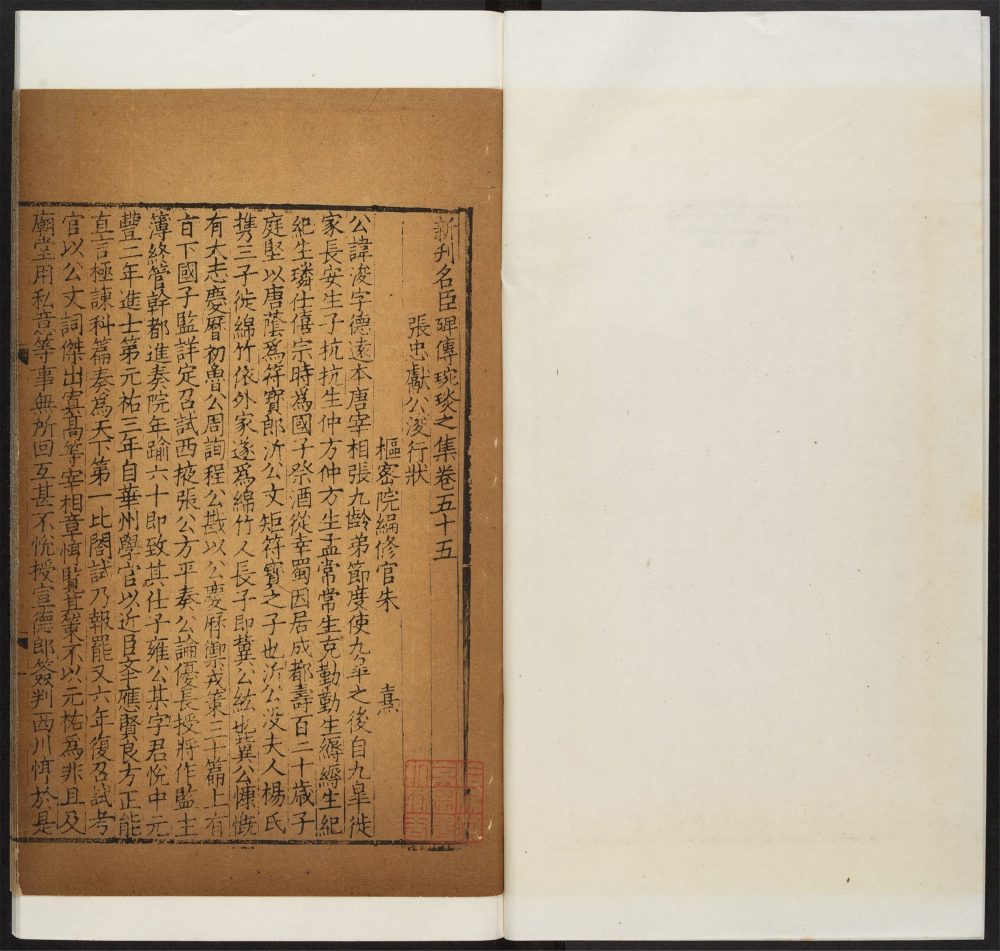 新刋名臣碑傳琬琰之集卷五十五
張忠獻公浚行狀
樞密院編修官朱 熹
公諱浚字德遠本唐宰相張九齡弟節度使九皐之後自九皐徙
家長安生子抗抗生仲方仲方生孟常常生克勤勤生縟縟生紀
紀生璘仕僖宗時爲國子祭酒從幸蜀因居成都壽百二十歲子
庭堅以唐蔭爲符寶郎沂公文矩符寶之子也沂公没夫人楊氏
携三子徙綿竹依外家遂爲綿竹人長子即冀公絃也冀公慷慨
有大志慶曆初魯公周詢程公戡以公慶曆禦戎策三十篇上有
旨下國子監詳定召試西掖張公方平奏公論優長授將作監主
簿終管幹都進奏院年踰六十即致其仕子雍公其字君悅中元
豐二年進士第元祐三年自華州學官以近臣奉應賢良方正能
直言極諫科篇奏爲天下第一比閣試乃報罷又六年復召試考
官以公文詞傑出寘髙等宰相章惇覽其策不以元祐爲非且及
廟堂用私意等事無所回互甚不悅授宣德郎簽判西川惇於是